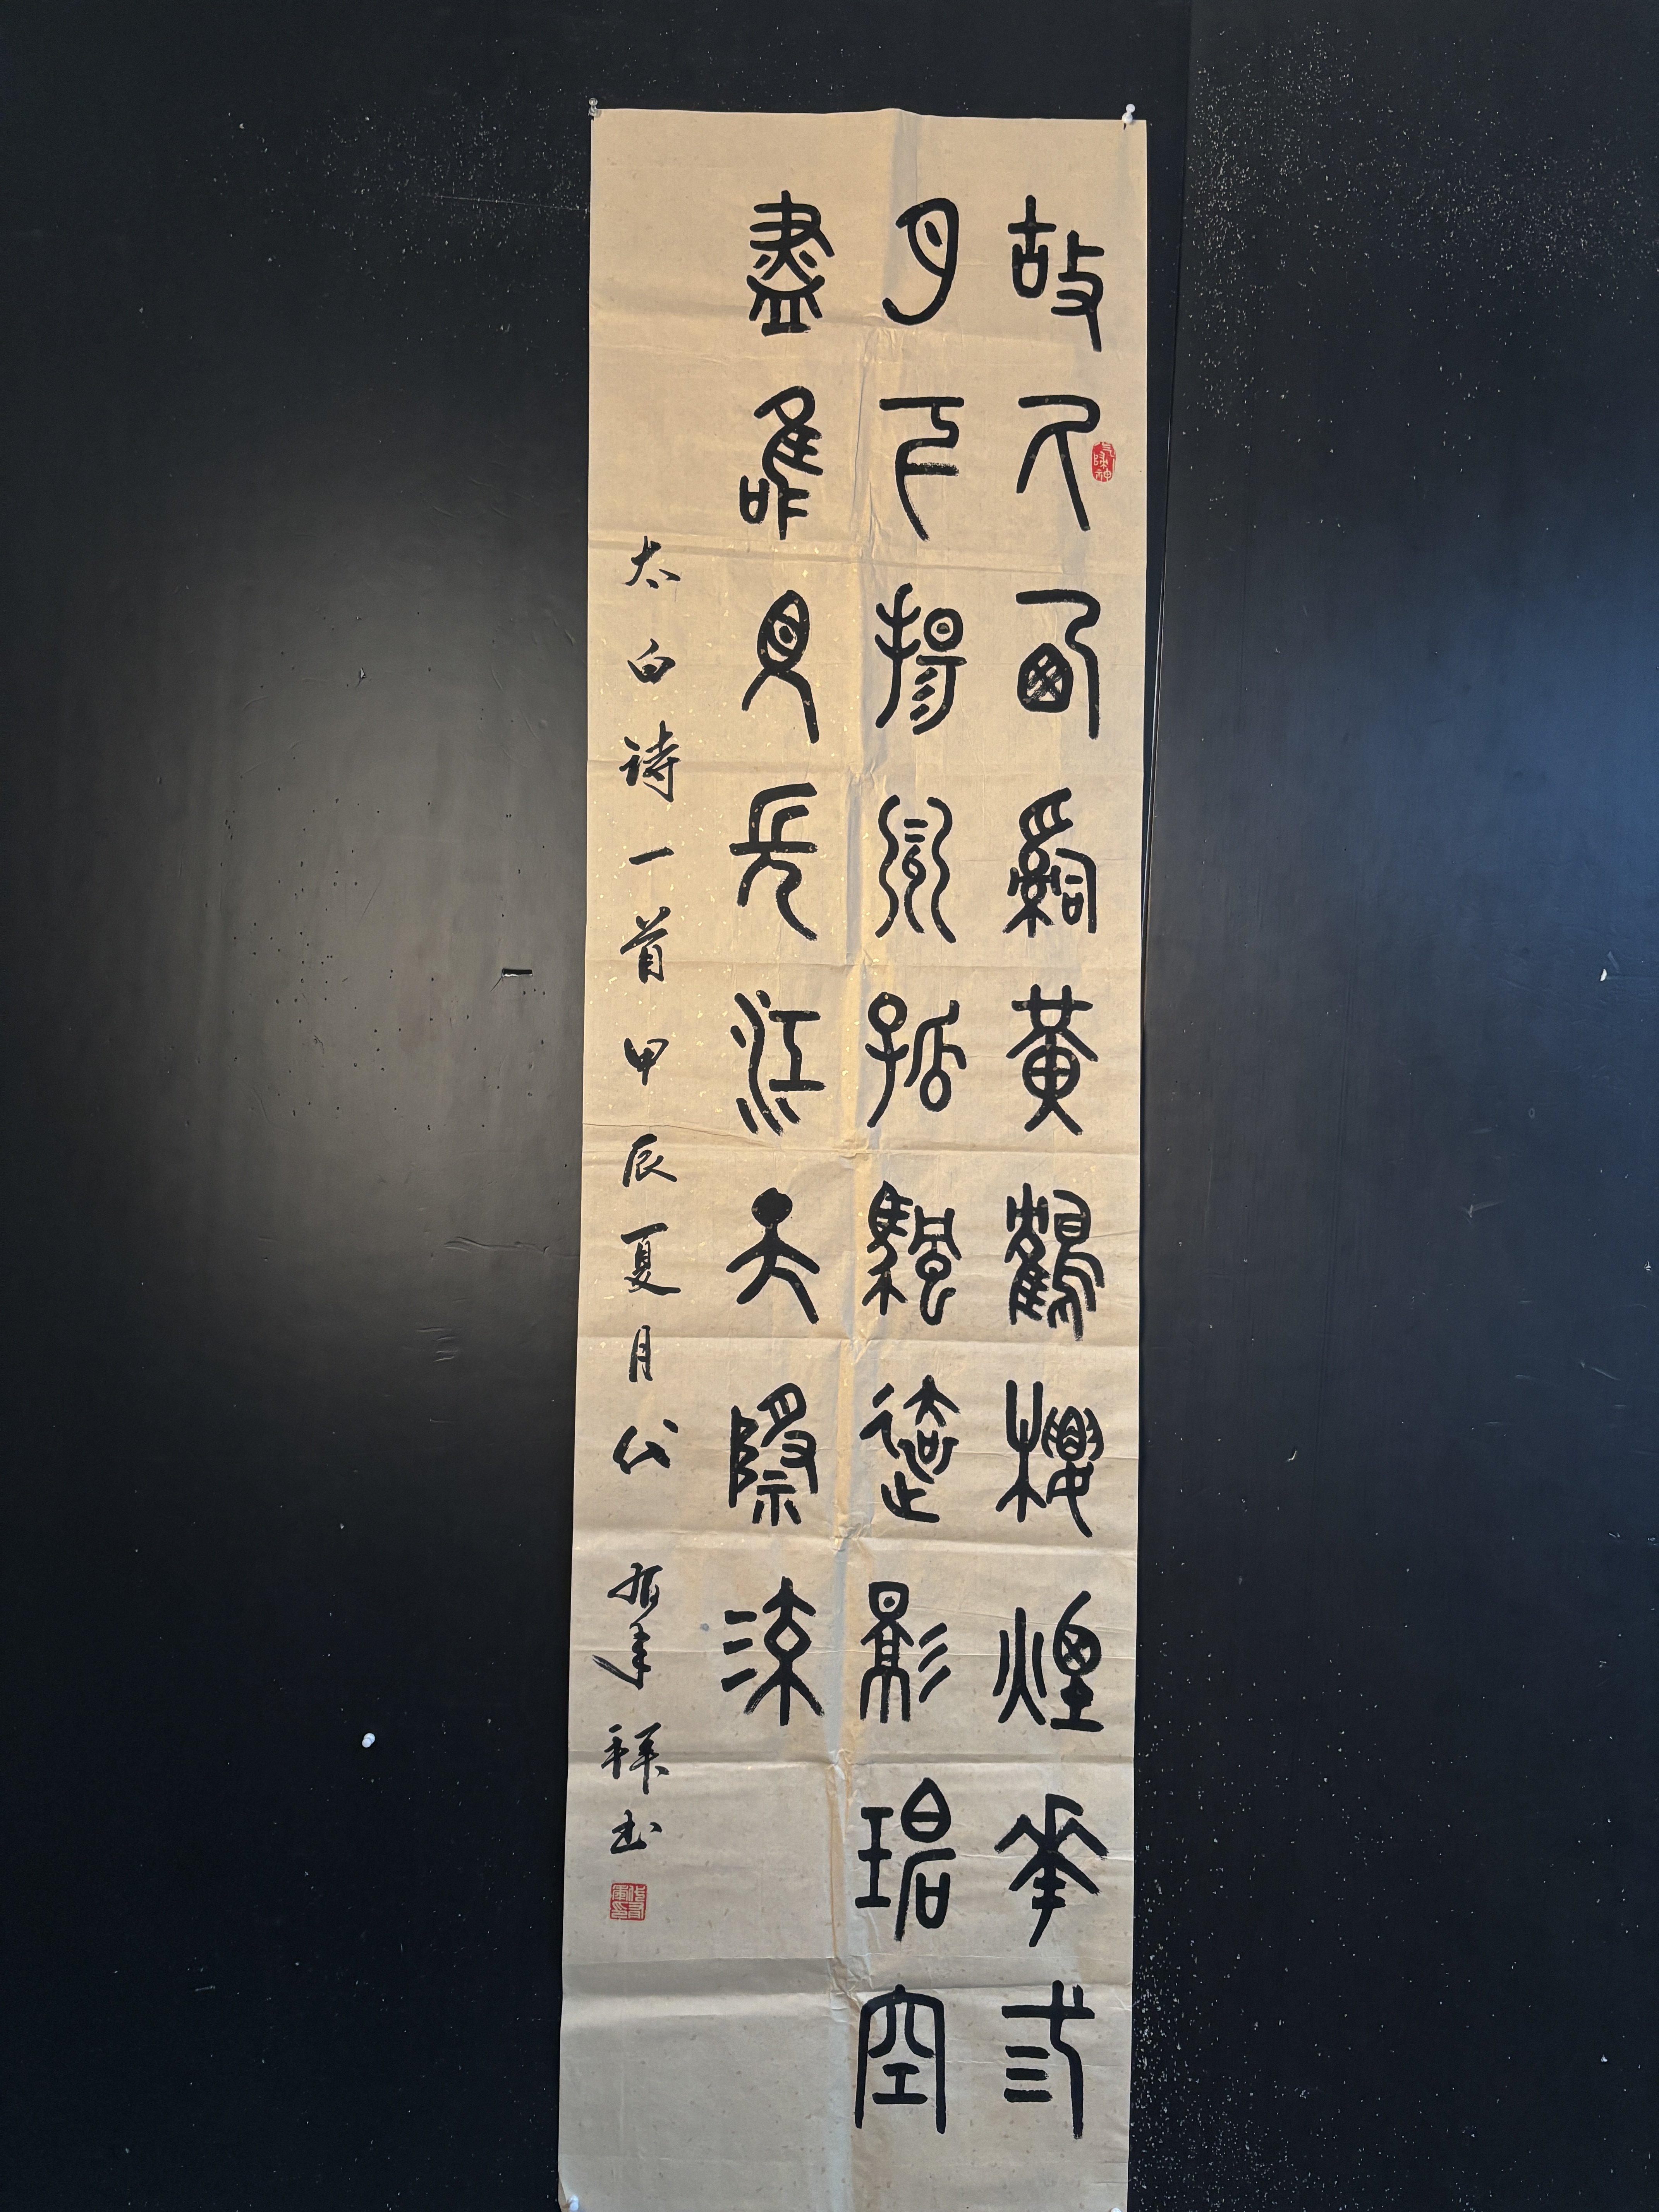 故人西辭黃鶴樓煙花弎
月下揚州孤颿遠影碧空
盡唯見長江天際流
太白诗一首甲辰夏月代书